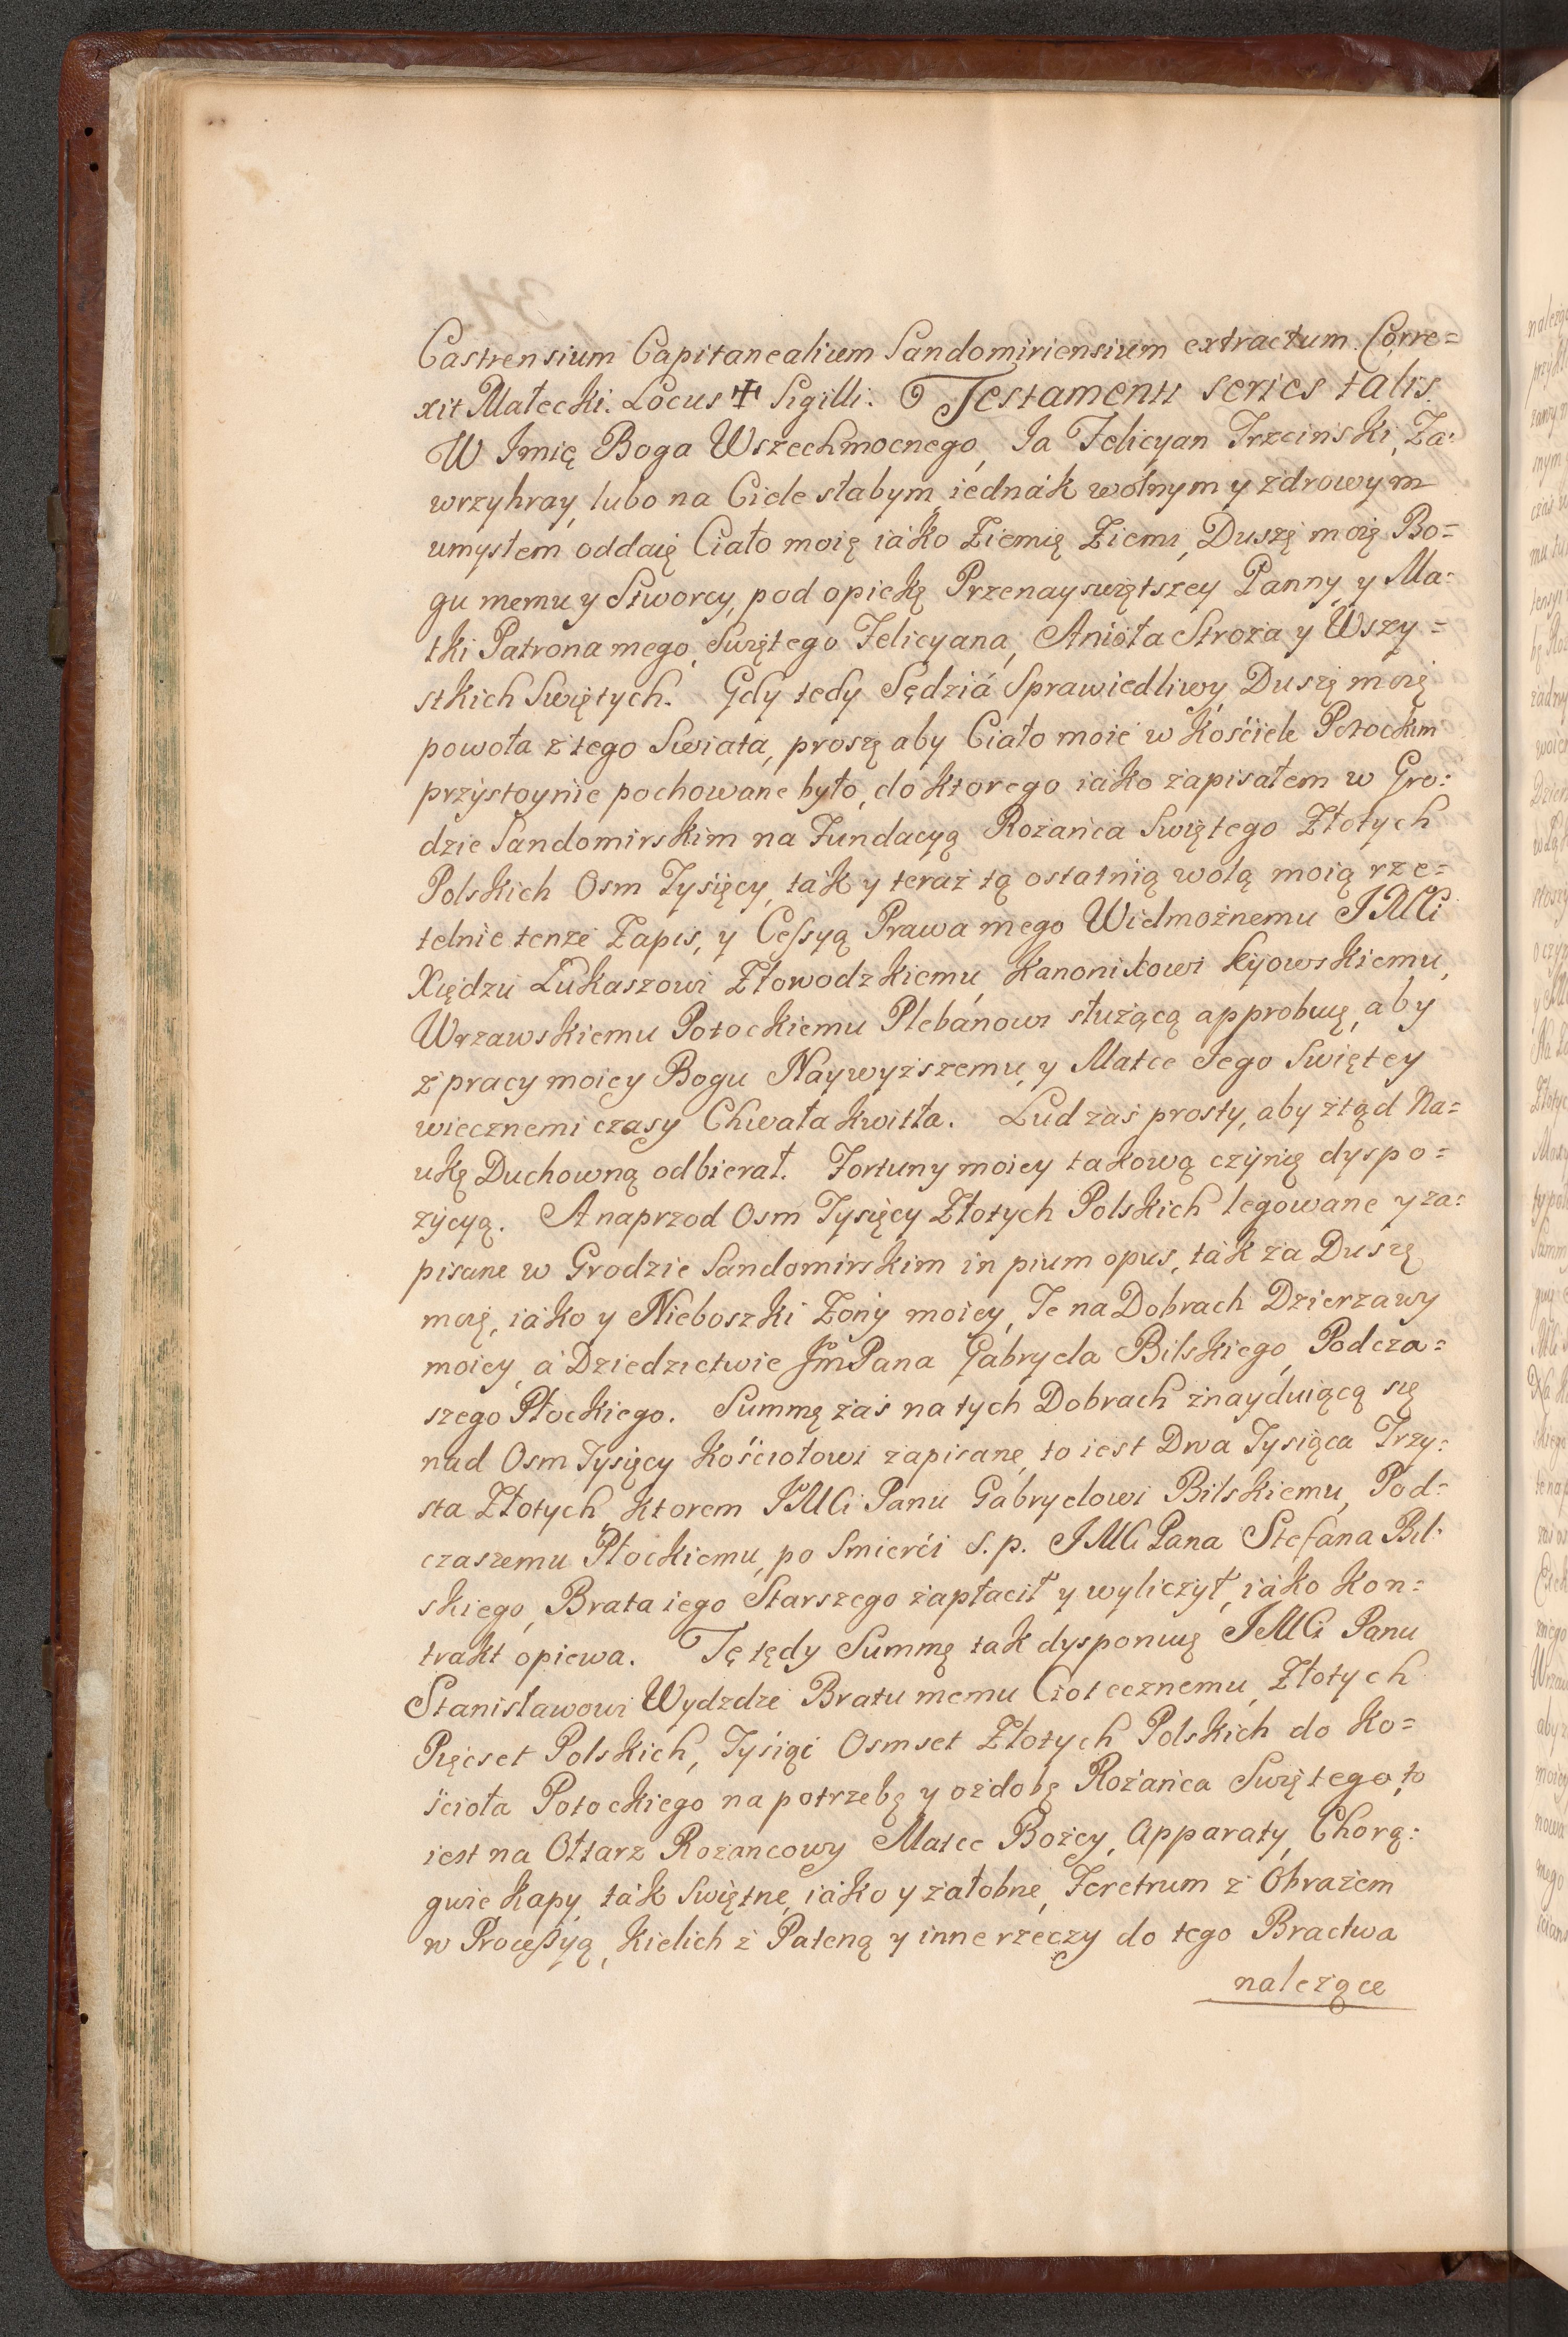 Castrensium Capitanealium Sandomiriensium extractum. Corre=
xit Małecki. Locus ✝ Sigilli. Testamenti series talis.
W Imię Boga Wszechmocnego, Ia Felicyan Trzcinski, Za=
wrzyhray, lubo na Ciele słabym, iednák wolnym y zdrowym
umysłem oddaię Ciało moię iáko Ziemię Ziemi, Duszę moię Bo=
gu memu y Stworcy, pod opiekę Przenayswiętszey Panny, y Ma=
tki Patrona mego, Swiętego Felicyana, Anioła Stroża y Wszy=
stkich Swiętych. Gdy tedy Sędziá Sprawiedliwy Duszę moię
powoła z tego Swiata, proszę aby Ciało moie w Kościele Potockim
przystoynie pochowane było, do ktorego iáko zapisałem w Gro=
dzie Sandomirskim na Fundacyą Rożańca Swiętego Złotych
Polskich Osm Tysięcy, ták y teraz tą ostatnią wolą moią rze=
telnie tenże Zapis, y Cessyą Prawa mego Wielmożnemu JMCi
Xiędzu Łukaszowi Złowodzkiemu, Kanonikowi Kijowskiemu,
Wrzawskiemu Potockiemu Plebánowi służącą approbuię, aby
z pracy moiey Bogu Naywyższemu, y Matce Jego Swiętey
wiecznemi czasy Chwała kwitła. Lud zaś prosty, aby ztąd Na=
ukę Duchowną odbierał. Fortuny moiey takową czynię dyspo=
zycyą. A naprzod Osm Tysięcy Złotych Polskich legowane y za=
pisane w Grodzie Sandomirskim in pium opus, ták za Duszę
moię, iáko y Nieboszki Żony moiey, Te na Dobrach Dzierzawy
moiey, á Dziedzictwie JmPana Gabryela Bilskiego, Podcza=
szego Płockiego. Summę zaś na tych Dobrach znayduiącą się
nad Osm Tysięcy Kościołowi zapisane, to iest Dwa Tysiąca Trzy=
sta Złotych, ktorem JMCi Panu Gabryelowi Bilskiemu, Pod=
czaszemu Płockiemu, po Smierći S. p. JMCi Pana Stefana Bil=
skiego, Brata iego Starszego zapłacił y wyliczył, iáko Kon=
trakt opiewa. Tę tędy Summę tak dysponuię JMCi Panu
Stanisławowi Wydzdze Bratu memu Ciotecznemu, Złotych
Pięcset Polskich, Tysiąc Osmset Złotych Polskich do Ko=
ścioła Potockiego na potrzebę y ozdobę Rożańca Swiętego, to
iest na Ołtarz Rożancowy Matce Bożey, Apparaty, Chorą=
gwie Kapy, ták Swiętne, iáko y żałobne, Feretrum z Obrazem
w Processyą, Kielich z Pateną y inne rzeczy do tego Bractwa
nalezące